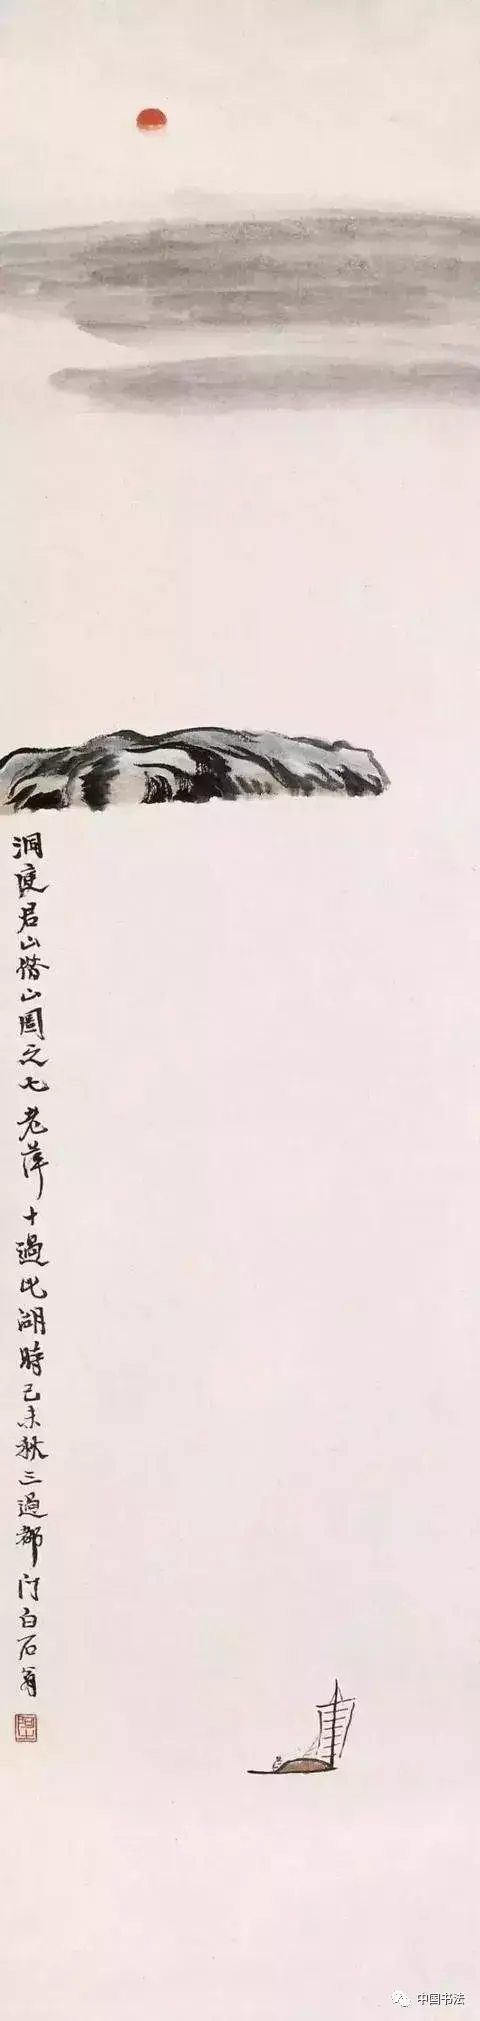 洞庭君山借山图之七老萍十過此湖時己未秋三過都门白石翁
中国书法